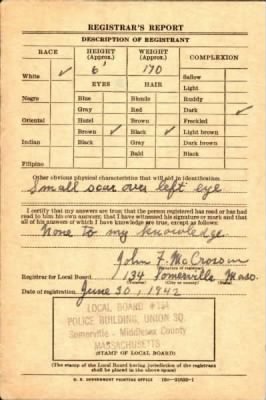 REGISTRAR'S REPORT
DESCRIPTION OF REGISTRANT
RACE HEIGHT (Approx.) WEIGHT (Approx.) COMPLEXION
White ✓ 6' 170 Sallow
EYES HAIR Light
Negro Blue Blonde Ruddy
Gray Red Dark ✓
Oriental Hazel Brown Freckled
Brown ✓ Black ✓ Light brown
Indian Black Gray Dark brown
Bald Black
Filipino
Other obvious physical characteristics that will aid in identification
Small scar over left eye
I certify that my answers are true; that the person registered has read or has had
read to him his own answers; that I have witnessed his signature or mark and that
all of his answers of which I have knowledge are true, except as follows:
None to my knowledge.
John F. McCrossan
Registrar for Local Board 134 Somerville Mass.
Date of registration June 30, 1942
LOCAL BOARD #134
POLICE BUILDING, UNION SQ.
Somerville - Middlesex County
MASSACHUSETTS
(STAMP OF LOCAL BOARD)
(The stamp of the Local Board having jurisdiction of the registrant
shall be placed in the above space.)
U. S. GOVERNMENT PRINTING OFFICE